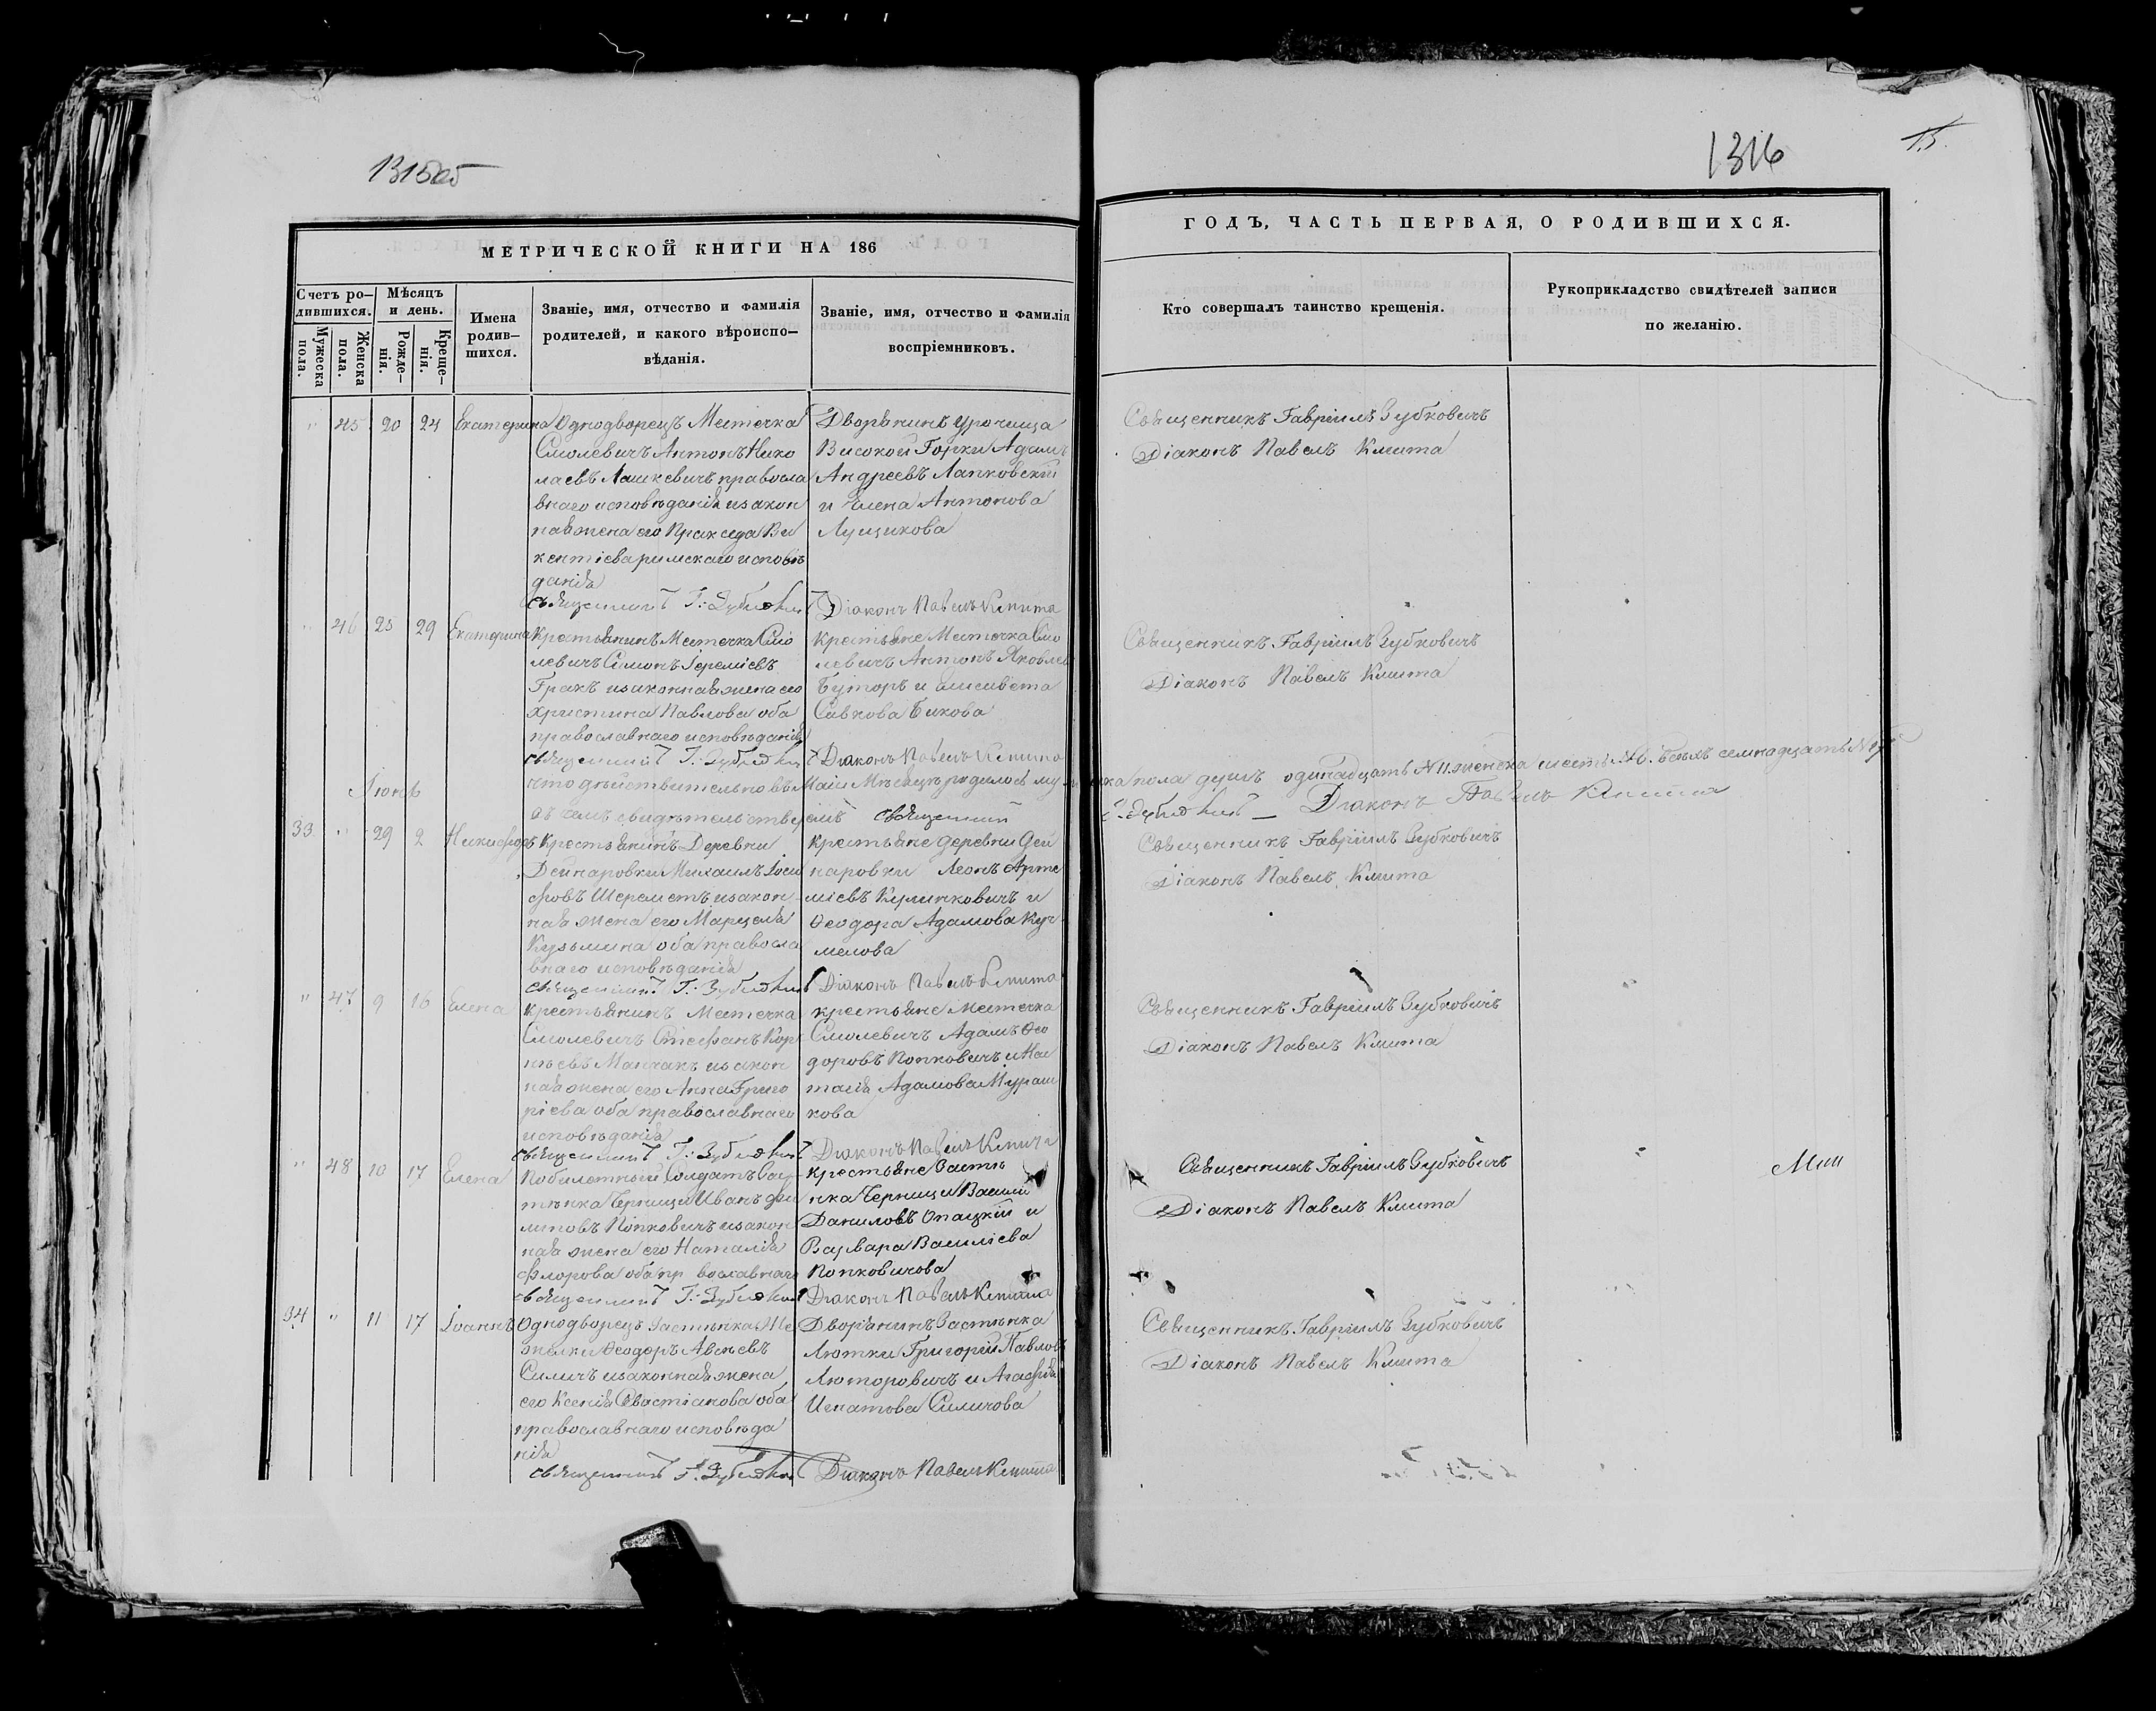 1316
15.
МЕТРИЧЕСКОЙ КНИГИ НА 186
Счетъ ро-
дившихся.
Мужеска
пола.
Женска
пола.
Мѣсяцъ
и день.
Рожде-
нія.
Креще-
нія.
Имена
родив-
шихся.
Званіе, имя, отчество и фамилія
родителей, и какого вѣроиспо-
вѣданія.
Званіе, имя, отчество и фамилія
воспріемниковъ.
ГОДЪ, ЧАСТЬ ПЕРВАЯ, О РОДИВШИХСЯ.
Кто совершалъ таинство крещенія.
Рукоприкладство свидѣтелей записи
по желанію.
" 45 20 24 Екатерина
Однодворецъ Местечка
Смолевичъ Антонъ Нико
лаевъ Лашкевичъ правосла
внаго исповѣданія и закон
ная жена его Праксeда Ви
кентіева римскаго исповѣ
данія
Священникъ Г: Зубковичъ
Дворянинъ урочища
Високой Горки Адамъ
Андреевъ Лапковскій
и Елена Антонова
Лущикова
Діаконъ Павелъ Кмита
Священникъ Гавріилъ Зубковичъ
Діаконъ Павелъ Кмита
" 46 25 29 Екатерина
Крестьянинъ Местечка Смо
левичъ Симонъ Іереміевъ
Гракъ и законная жена его
Христина Павлова оба
православнаго исповѣданія
Священникъ Г: Зубковичъ
Крестьяне Местечка Смо
левичъ Антонъ Яковлев
Буторъ и Елисавета
Савкова Бикова
Діаконъ Павелъ Кмита
Священникъ Гавріилъ Зубковичъ
Діаконъ Павелъ Кмита
что дѣйствительно въ Маіи Мѣсяцѣ родилось мужеска пола душъ одинадцать N 11. женска шесть N 6. всѣхъ семнадцать N 17
въ семъ свидѣтельствуемъ Священникъ Г. Зубковичъ Діаконъ Павелъ Кмита
Іюнь
33 " 29 2 Никифоръ
Крестьянинъ Деревни
Дейнаровки Михаилъ Іоси
фовъ Шереметъ и закон
ная жена его Марцеля
Кузьмина оба правосла
внаго исповѣданія
Священникъ Г: Зубковичъ
Крестьяне деревни Дей
наровки Леонъ Арте
міевъ Кулинковичъ и
Ѳеодора Адамова Куч
мелова
Діаконъ Павелъ Кмита
Священникъ Гавріилъ Зубковичъ
Діаконъ Павелъ Кмита
" 47 9 16 Елена
Крестьянинъ Местечка
Смолевичъ Стефанъ Кор
нѣевъ Манхакъ и закон
ная жена его Анна Григо
ріева оба православнаго
исповѣданія
Священникъ Г: Зубковичъ
Крестьяне Местечка
Смолевичъ Адамъ Ѳео
доровъ Попковичъ и На
талія Адамова Мураш
кова
Діаконъ Павелъ Кмита
Священникъ Гавріилъ Зубковичъ
Діаконъ Павелъ Кмита
" 48 10 17 Елена
Побилетный Солдатъ Зас
тѣнка Черници Иванъ Дани
ловъ Попковичъ и закон
ная жена его Наталія
Флорова оба православнаго
Священникъ Г: Зубковичъ
Крестьяне Застѣ
нка Черници Василій
Даниловъ Опацкій и
Варвара Василіева
Попковичова
Діаконъ Павелъ Кмита
Священникъ Гавріилъ Зубковичъ
Діаконъ Павелъ Кмита
34 " 11 17 Іоаннъ
Однодворецъ Застѣнка Же
желки Ѳеодоръ Авсѣевъ
Силичъ и законная жена
его Ксенія Севастіанова оба
православнаго исповѣда
нія
Священникъ Г: Зубковичъ
Дворянинъ Застѣнка
Лютки Григорій Павловъ
Люторовичъ и Агафія
Игнатова Силичова
Діаконъ Павелъ Кмита
Священникъ Гавріилъ Зубковичъ
Діаконъ Павелъ Кмита